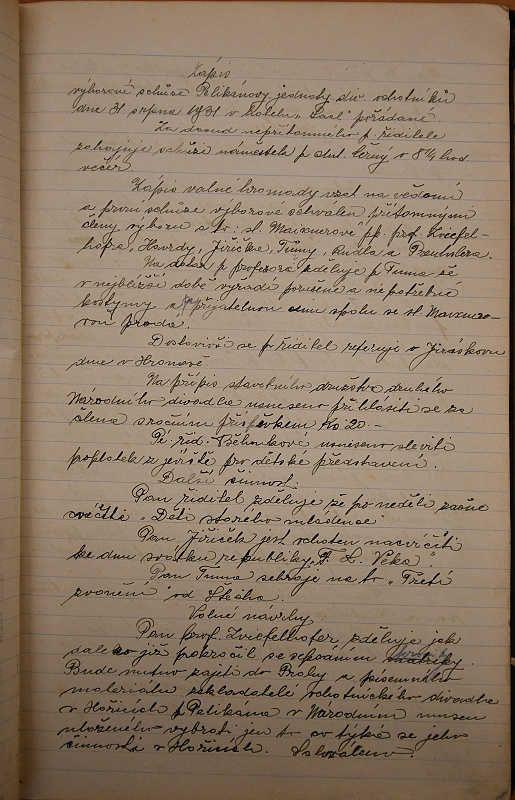 Zápis
výborové schůze Pelikánovy jednoty div. ochotníků
dne 31 srpna 1931 v hotelu pořádané.
Za dosud nepřítomného p. ředitele
zahajuje schůzi náměstek p. Černý o 8¼ hod
večer.
Zápis valné hromady vzat na vědomí
a první schůze výborové schválen přítomnými
členy výboru a to: sl. Maixnerové pp. prof. Kviefel-
hofra, Havrdy, Jiřičky, Tůmy, Rudla a
Na dotaz p. profesora sděluje p. Tuma že
v nejbližší době vyřadí porušené a nepotřebné
kostymy a přijatelnou cenu spolu se sl. Maixnero-
vou prodá.
Dostavivší se p. ředitel referuje o Jiráskovu
dne v Hronově.
Na přípis stavebního družstva druhého
Národního divadla usneseno přihlásiti se za
člena s ročním příspěvkem Kč 20.-
Pí. říd. usneseno sleviti
poplatek z jeviště pro dětské představení.
Další činnost.
Pan ředitel sděluje že po neděli začne
cvičiti „Děti starého mládence"
Pan Jiřiček jest ochoten nacvičiti
ke dnu svátku republiky F. L. Věka".
Pan Tuma na to „Třetí
zvonění" od Štecha.
Volné návrhy.
Pan prof. Zviefelhofer sděluje jak
daleko již pokročil se sepsáním matriky.
Bude nutno zajeti do Prahy a písemného
materiálu zakladatele ochotnického divadla
v Hořicích p. Pelikána v Národním museu
uloženého vybrati jen to co týká se jeho
činnosti v Hořicích. Schváleno.